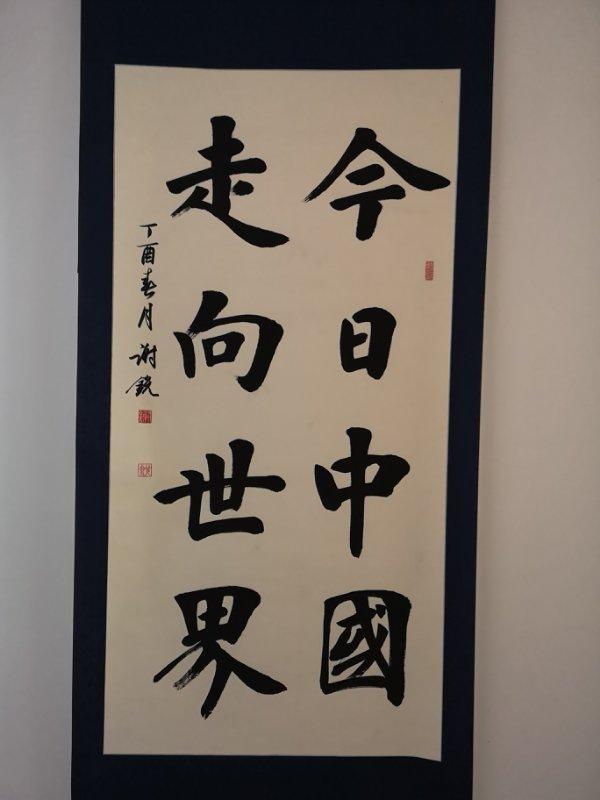 今日中國
走向世界
丁酉春月 谢锐